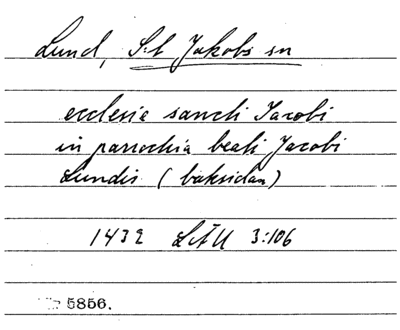 Lund, S:t Jakobs sn
ecclesie sancti Jacobi
in parrochia beati Jacobi
Lundis (baksidan)
1432 LÄU 3:106
5856.